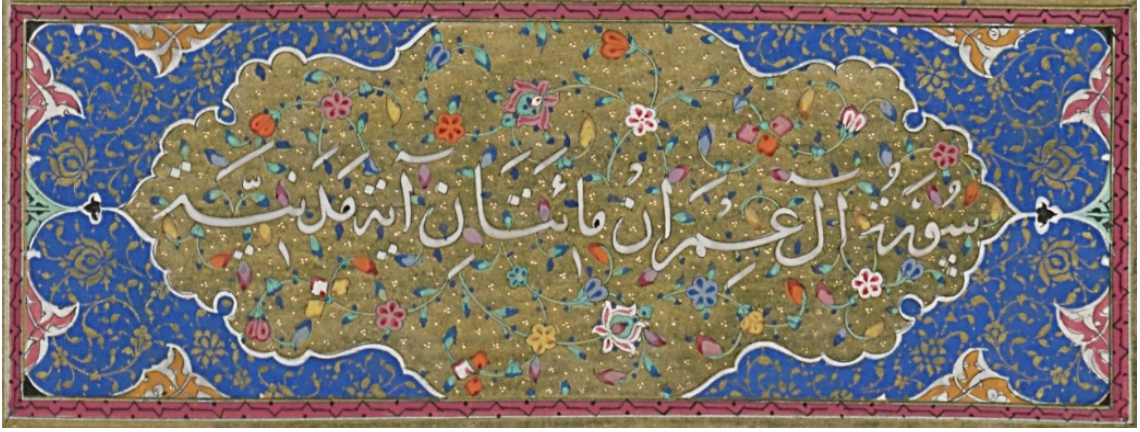 سُورَةُ آلِ عِمْرَان مِائَتَانِ آيَة مَدَنِيَّة